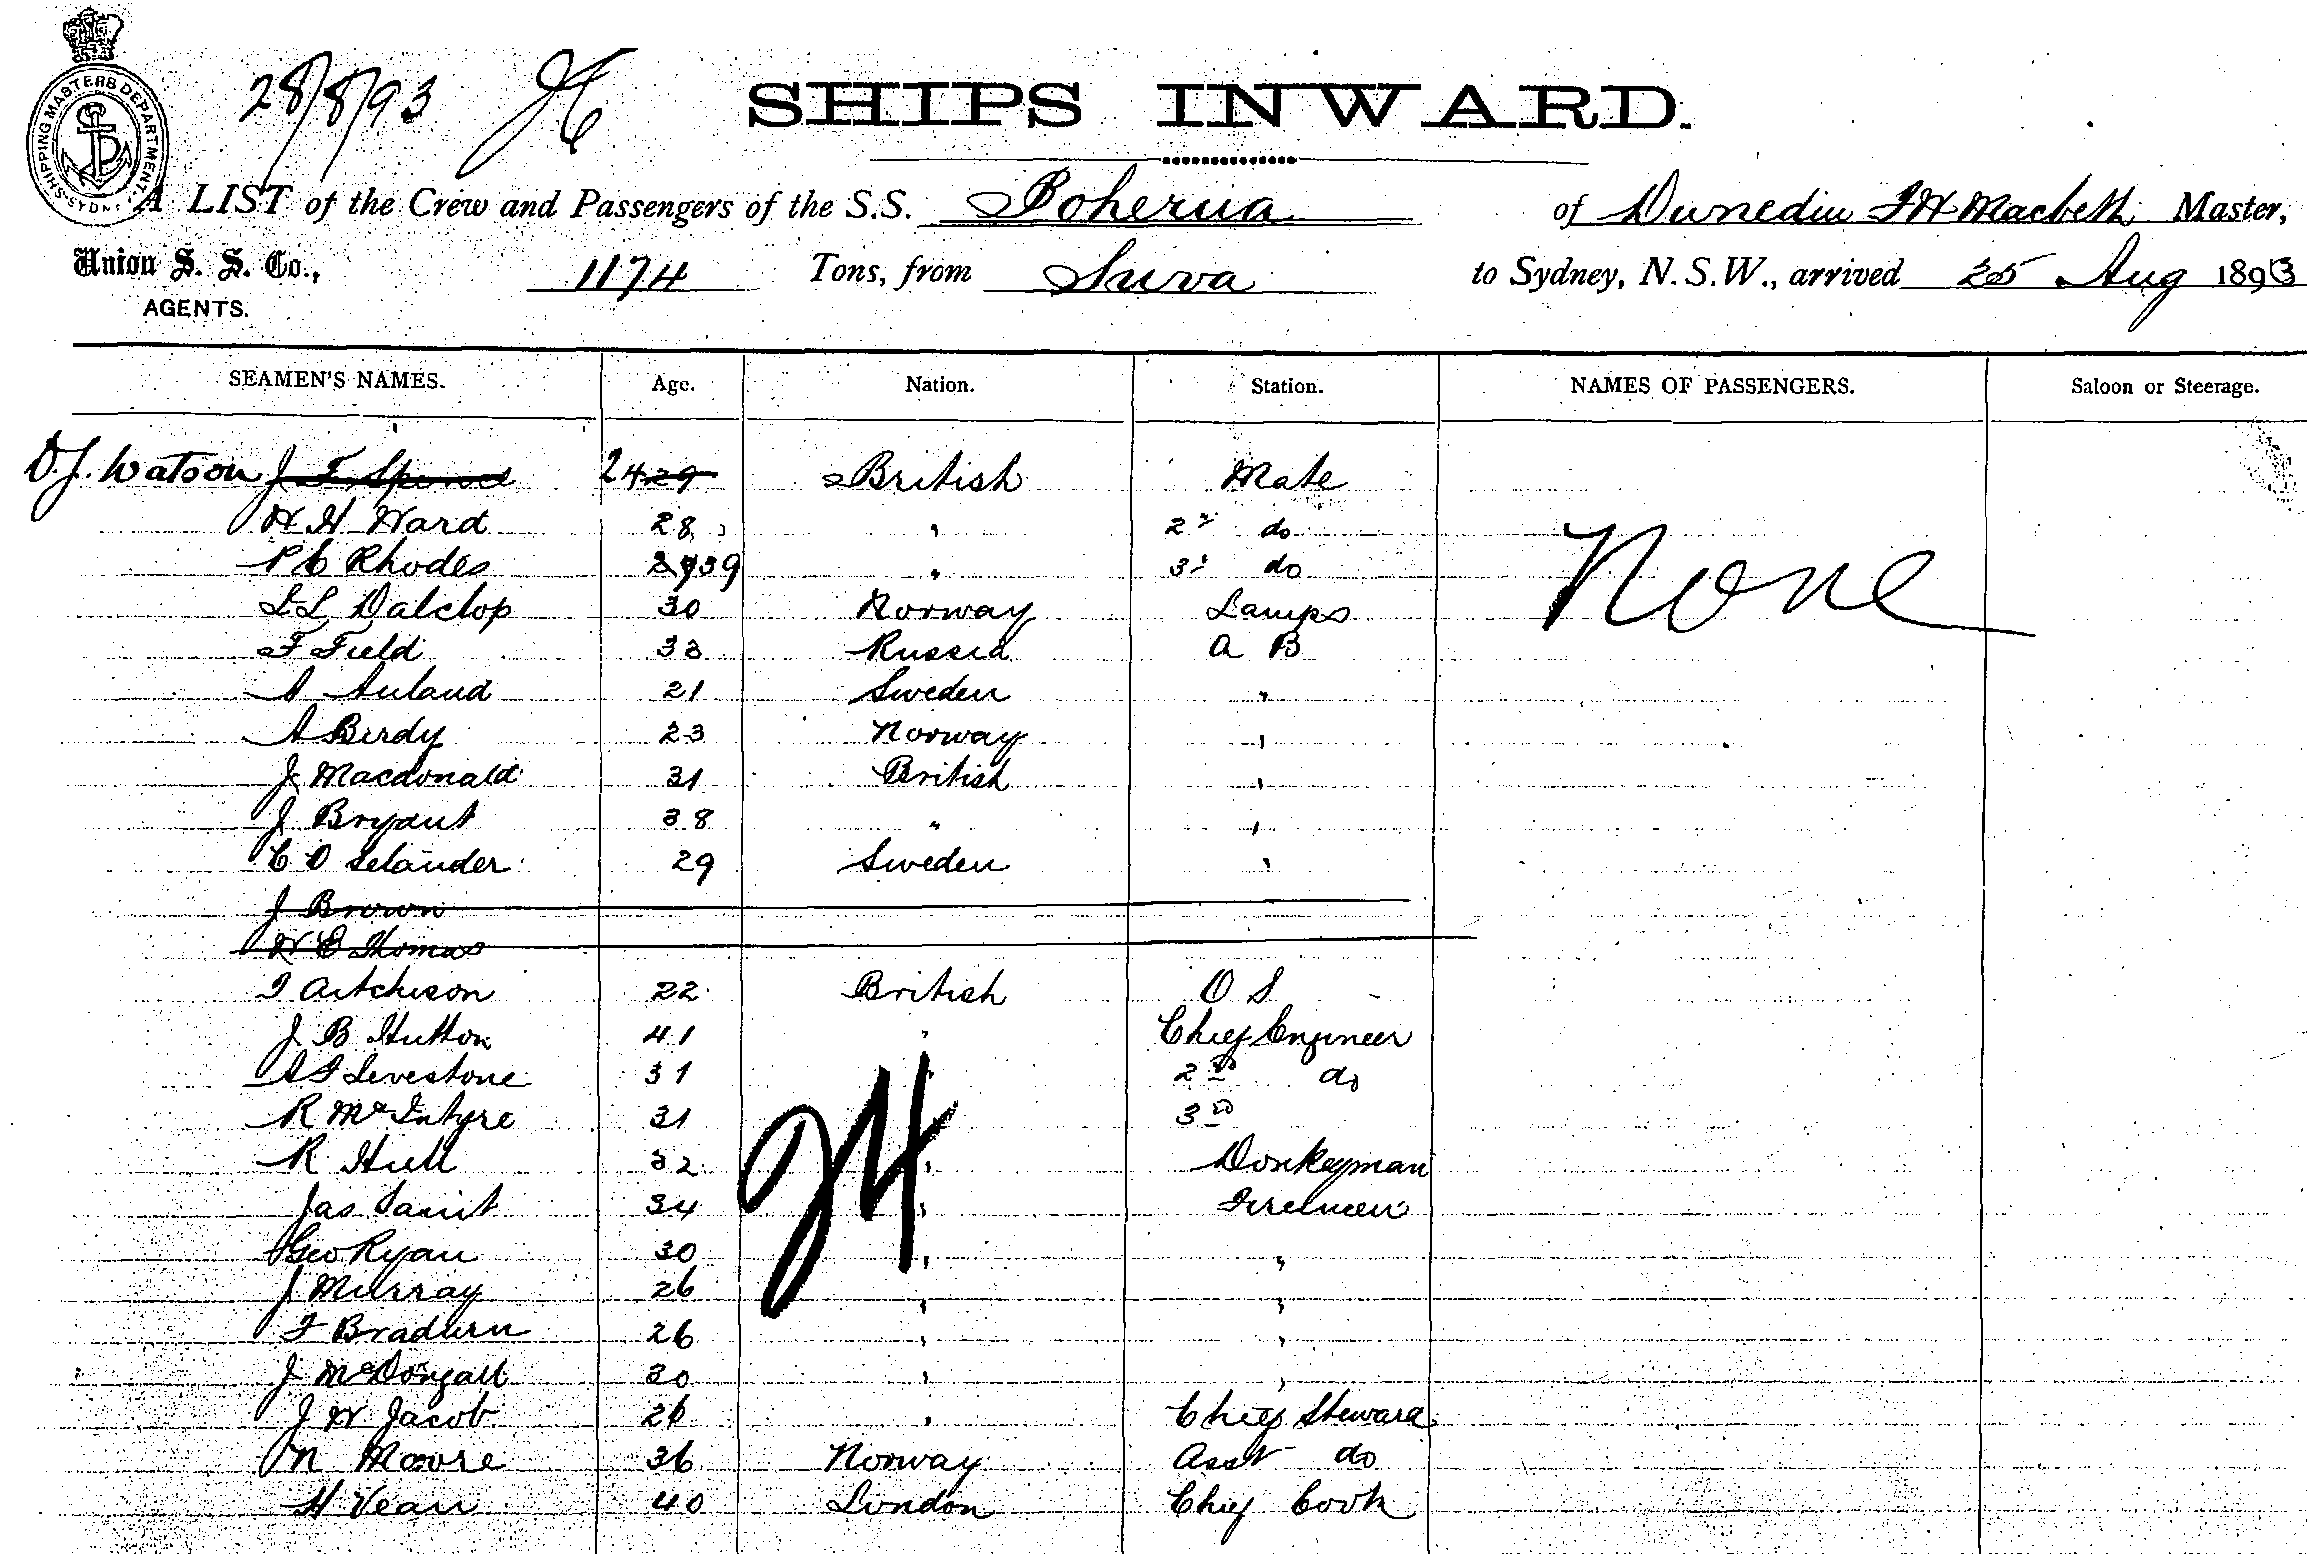 28/8/93
SHIPS INWARD.
SHIPPING MASTERS DEPARTMENT. SYDNEY
A LIST of the Crew and Passengers of the S.S. Poherua of Dunedin J H Macbeth Master,
Union S. S. Co., AGENTS. 1174 Tons, from Suva to Sydney, N.S.W., arrived 25 Aug 1893
SEAMEN'S NAMES. Age. Nation. Station. NAMES OF PASSENGERS. Saloon or Steerage.
D.J. Watson J F Spence 24 29 British Mate
H H Ward 28 " 2nd do
P C Rhodes 39 " 3rd do
None
L L Dalctop 30 Norway Lamps
F Field 33 Russia A B
A Auland 21 Sweden "
A Berdy 23 Norway "
J Macdonald 31 British "
J Bryant 38 " "
C O Selander 29 Sweden "
J Brown
H E Thomas
J Aitchison 22 British O S
J B Hutton 41 " Chief Engineer
A J Levestone 31 " 2nd do
R McIntyre 31 " 3rd
R Hill 32 " Donkeyman
Jas Saint 34 " Firemen
Geo Ryan 30 " "
J Murray 26 " "
F Bradurn 26 " "
J McDougall 30 " "
J H Jacob 26 " Chief Steward
N Moore 36 Norway Asst do
H Vean 40 London Chief Cook